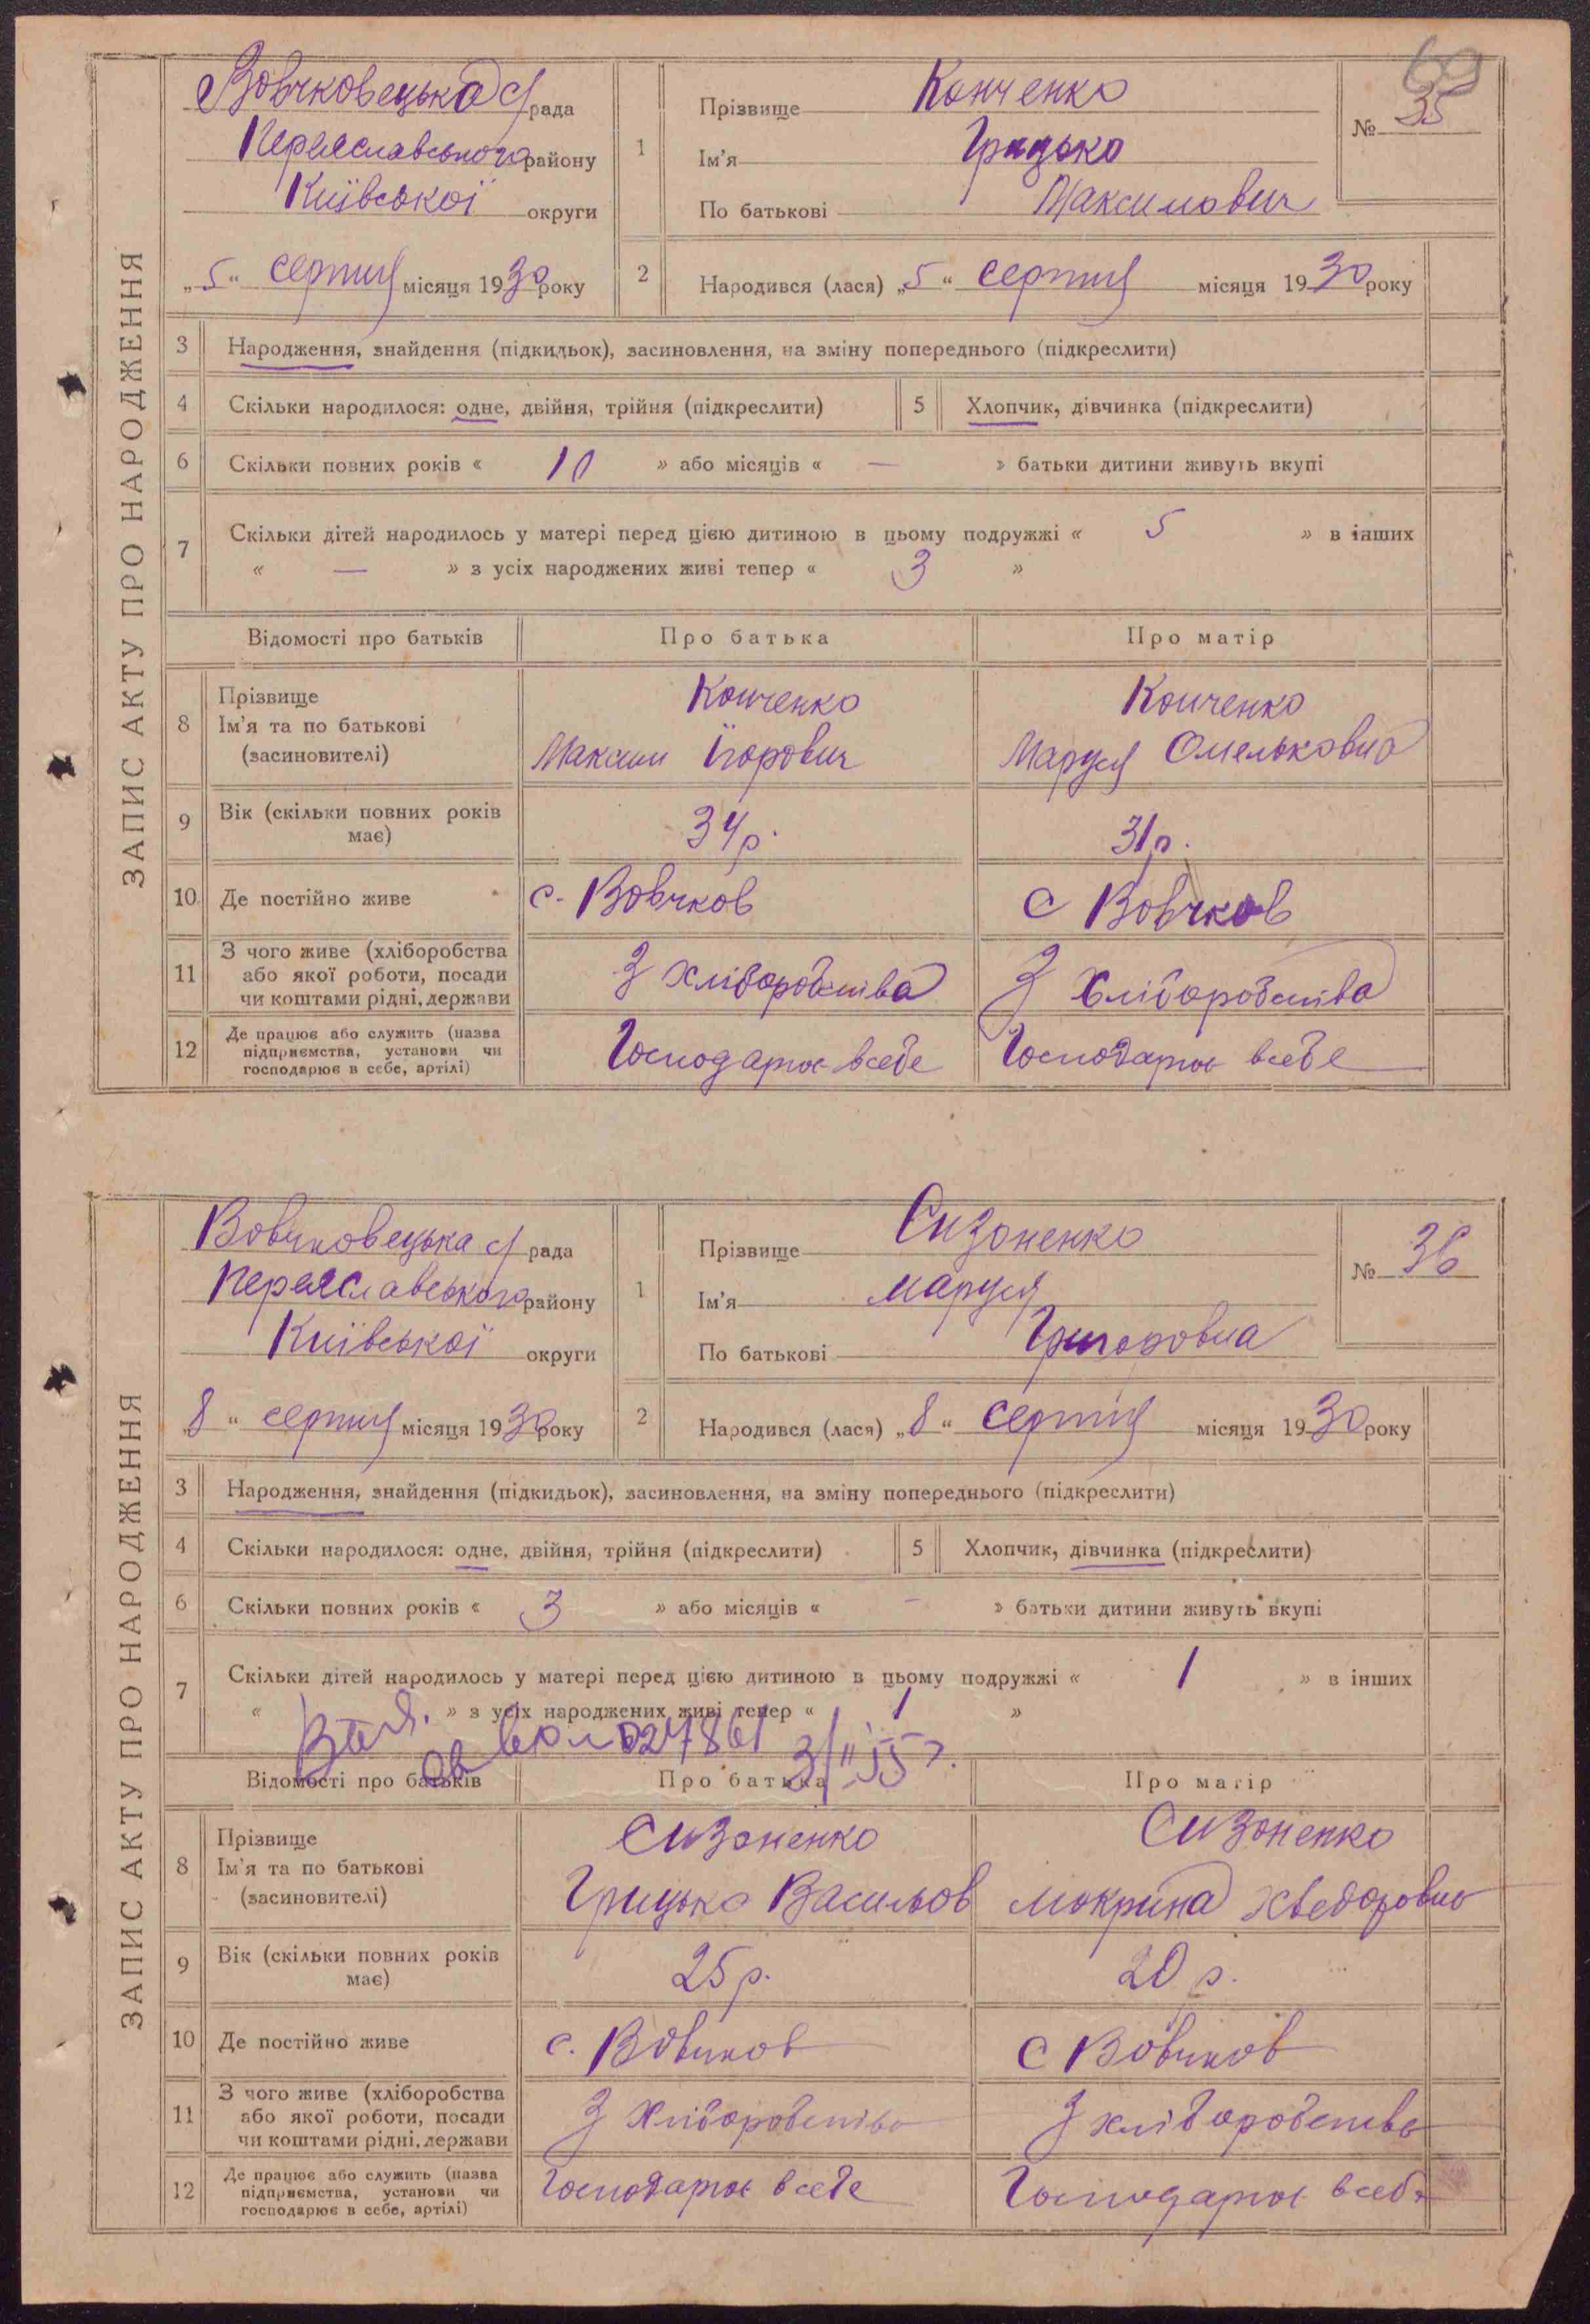 ЗАПИС АКТУ ПРО НАРОДЖЕННЯ
69
Вовчковецька с/рада
Переяславського району
Київської округи
„5“ серпня місяця 1930 року
1
Прізвище Конченко
Ім'я Грицько
По батькові Максимович
№ 35
2
Народився (лася) „5“ серпня місяця 1930 року
3 Народження, знайдення (підкидьок), засиновлення, на зміну попереднього (підкреслити)
4 Скільки народилося: одне, двійня, трійня (підкреслити)
5 Хлопчик, дівчинка (підкреслити)
6 Скільки повних років « 10 » або місяців « — » батьки дитини живуть вкупі
7 Скільки дітей народилось у матері перед цією дитиною в цьому подружжі « 5 » в інших
« — » з усіх народжених живі тепер « 3 »
Відомості про батьків Про батька Про матір
8 Прізвище Конченко Конченко
Ім'я та по батькові Максим Ігорович Маруся Омельковна
(засиновителі)
9 Вік (скільки повних років має) 34 р. 31 р.
10 Де постійно живе с. Вовчков с Вовчков
11 З чого живе (хліборобства або якої роботи, посади чи коштами рідні, держави З хліборобства З хліборобства
12 Де працює або служить (назва підприємства, установи чи господарює в себе, артілі) Господарює всебе Господарює всебе
ЗАПИС АКТУ ПРО НАРОДЖЕННЯ
Вовчковецька с/рада
Переяславського району
Київської округи
„8“ серпня місяця 1930 року
1
Прізвище Сизоненко
Ім'я маруся
По батькові Григоровна
№ 36
2
Народився (лася) „8“ серпня місяця 1930 року
3 Народження, знайдення (підкидьок), засиновлення, на зміну попереднього (підкреслити)
4 Скільки народилося: одне, двійня, трійня (підкреслити)
5 Хлопчик, дівчинка (підкреслити)
6 Скільки повних років « 3 » або місяців « — » батьки дитини живуть вкупі
7 Скільки дітей народилось у матері перед цією дитиною в цьому подружжі « 1 » в інших
« » з усіх народжених живі тепер « 1 »
027861 3/II 55 г.
Відомості про батьків Про батька Про матір
8 Прізвище Сизоненко Сизоненко
Ім'я та по батькові Грицько Васильов мокрина Хведоровна
(засиновителі)
9 Вік (скільки повних років має) 25 р. 20 р.
10 Де постійно живе с. Вовчков с Вовчков
11 З чого живе (хліборобства або якої роботи, посади чи коштами рідні, держави З хліборобства З хліборобства
12 Де працює або служить (назва підприємства, установи чи господарює в себе, артілі) Господарює всебе Господарює всебе